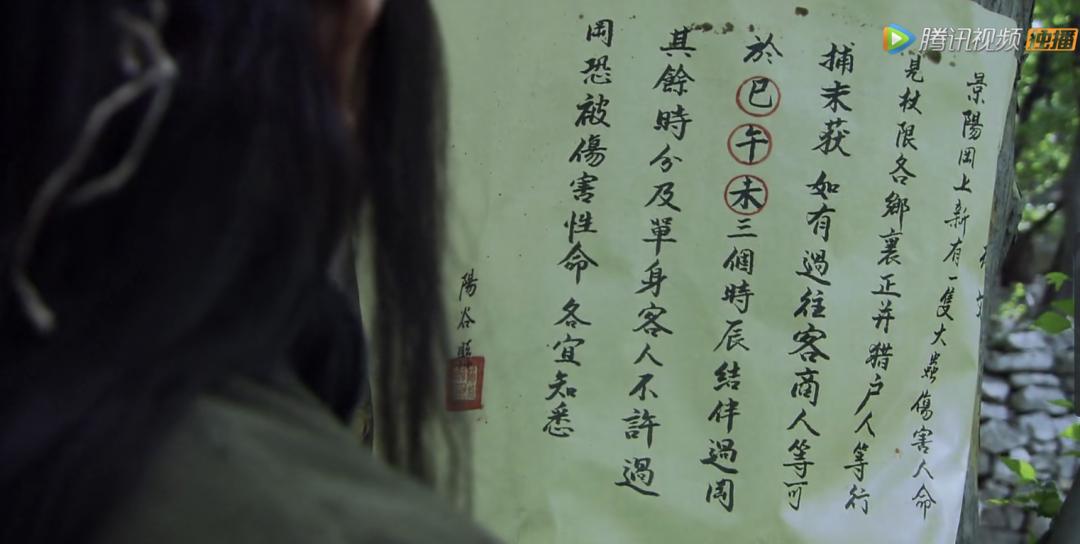 景陽岡上新有一隻大蟲傷害人命
見杖限各鄉襄正并猎户人等行
捕未获如有過往客商人等可
於巳午未三個時辰結伴過岡
其餘時分及單身客人不許過
岡恐被傷害性命各宜知悉
陽谷
腾讯视频 独播